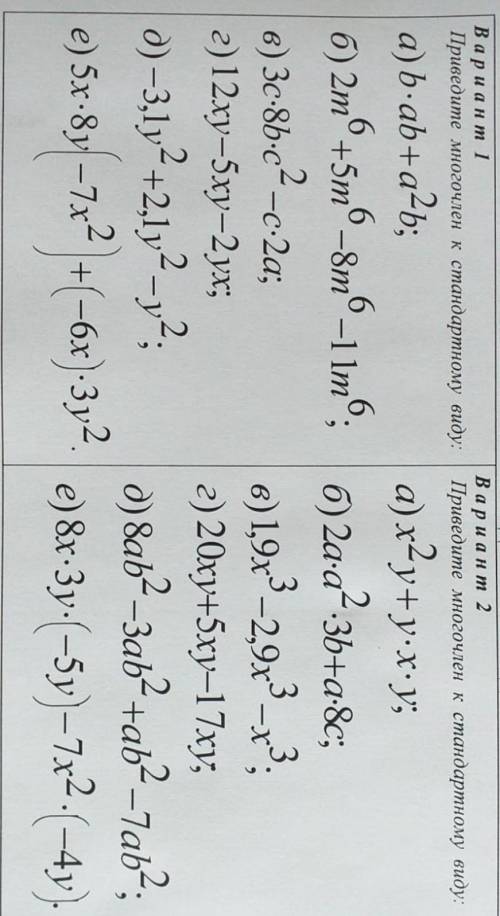 Вариант 1
Приведите многочлен к стандартному виду:
а) b·ab+a²b;
б) 2m⁶+5m⁶−8m⁶−11m⁶;
в) 3c·8b·c²−c·2a;
г) 12xy−5xy−2yx;
д) −3,1y²+2,1y²−y²;
е) 5x·8y(−7x²)+(−6x)·3y².
Вариант 2
Приведите многочлен к стандартному виду:
а) x²y+y·x·y;
б) 2a·a²·3b+a·8c;
в) 1,9x³−2,9x³−x³;
г) 20xy+5xy−17xy;
д) 8ab²−3ab²+ab²−7ab²;
е) 8x·3y·(−5y)−7x²·(−4y).